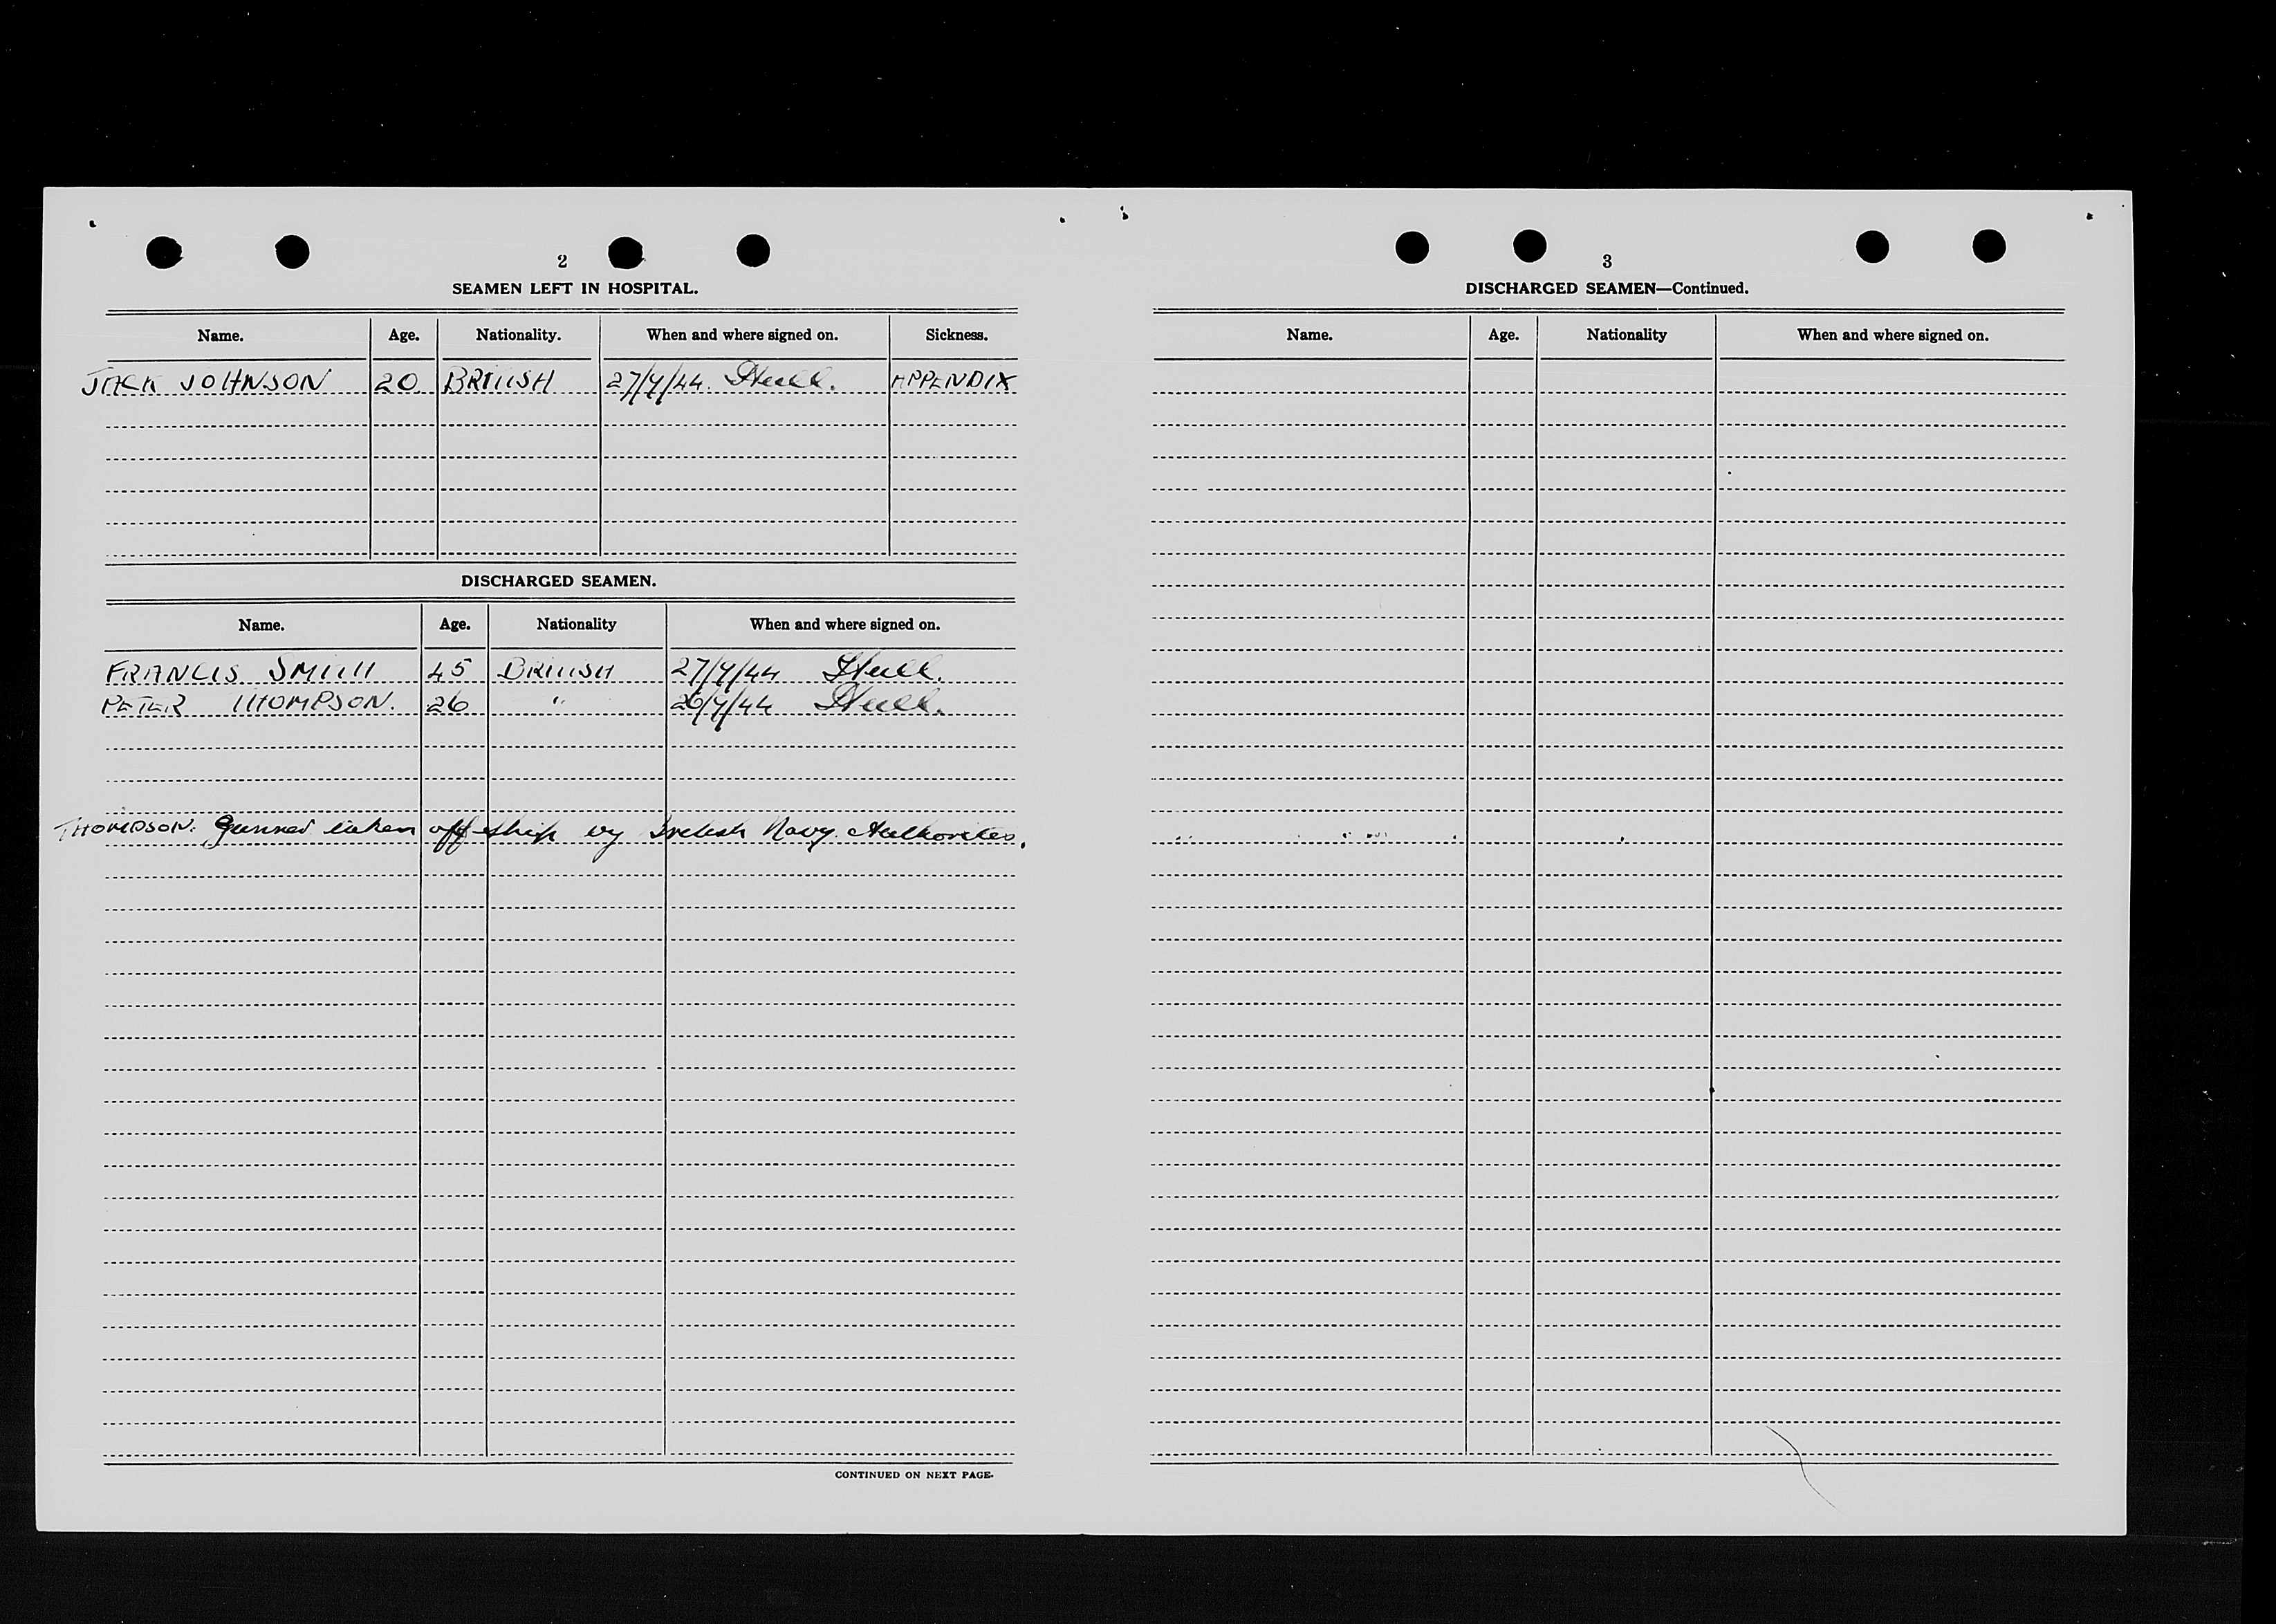 2
SEAMEN LEFT IN HOSPITAL.
Name. Age. Nationality. When and where signed on. Sickness.
JACK JOHNSON 20 BRITISH 27/4/44. Hull. APPENDIX
DISCHARGED SEAMEN.
Name. Age. Nationality When and where signed on.
FRANCIS SMITH 45 BRITISH 27/4/44 Hull.
PETER THOMPSON. 26 " 26/4/44 Hull.
THOMPSON. Gunner taken off ship by British Navy Authorites.
CONTINUED ON NEXT PAGE.
3
DISCHARGED SEAMEN—Continued.
Name. Age. Nationality When and where signed on.